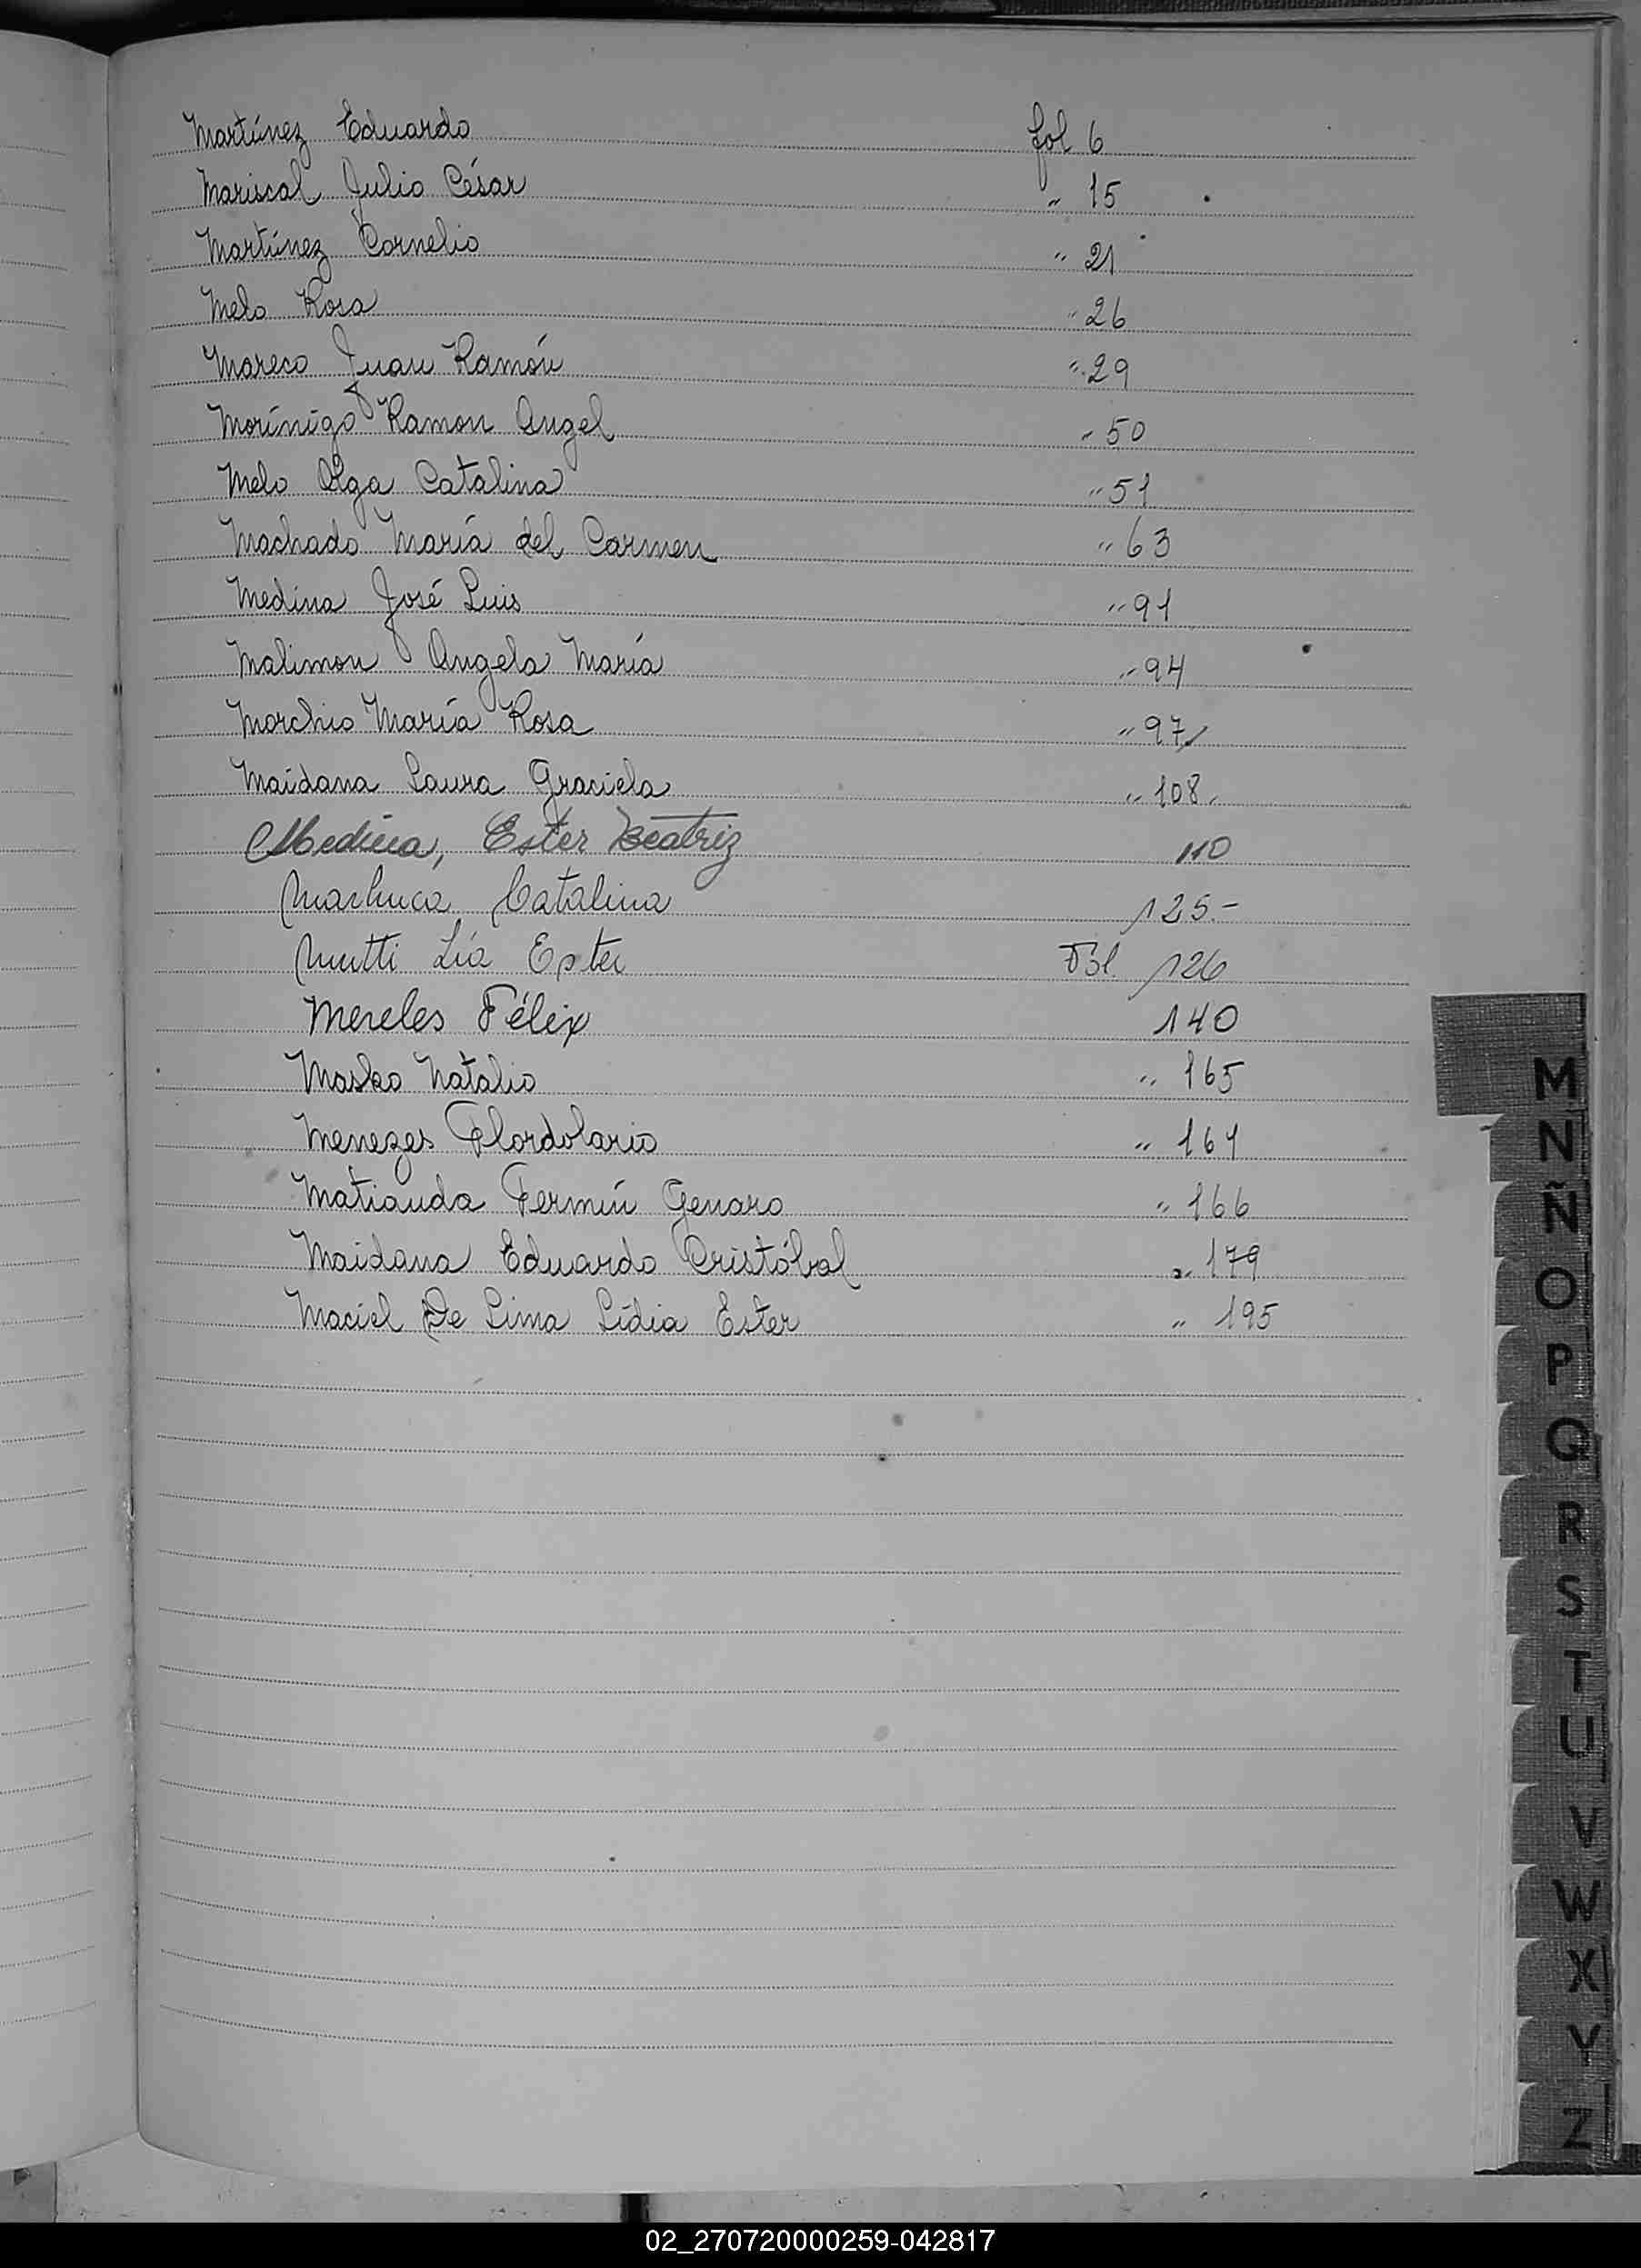 Martínez Eduardo fol 6
Mariscal Julio César " 15
Martínez Cornelio " 21
Melo Rosa " 26
Mareco Juan Ramón " 29
Morínigo Ramon Angel " 50
Melo Olga Catalina " 51
Machado María del Carmen " 63
Medina José Luis " 91
Malimon Angela María " 94
Morchio María Rosa " 97
Maidana Laura Graciela " 108
Medina, Ester Beatriz 110
Machuca Catalina 125.-
Mutti Lía Ester Fol. 126
Mereles Félix 140
Masko Natalio " 165
Menezes Flordolario " 161
Matiauda Fermín Genaro " 166
Maidana Eduardo Cristóbal " 179
Maciel De Lima Lidia Ester " 195
M
N
Ñ
O
P
Q
R
S
T
U
V
W
X
Y
Z
02_270720000259-042817